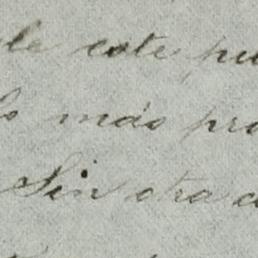 de este pu
lo más pro
Sin otra c